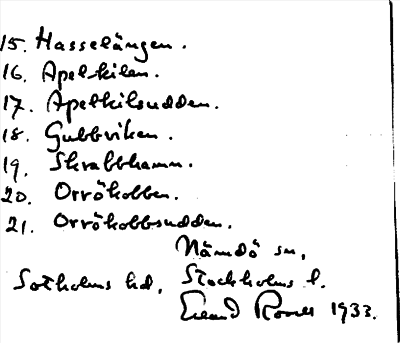 15. Hasselängen.
16. Apelkilen.
17. Apelkilsudden.
18. Gubbviken.
19. Skrabbhamn.
20. Orrökobben.
21. Orrökobbsudden.
Nämdö sn,
Sotholms hd, Stockholms l.
Erland Rosell 1933.